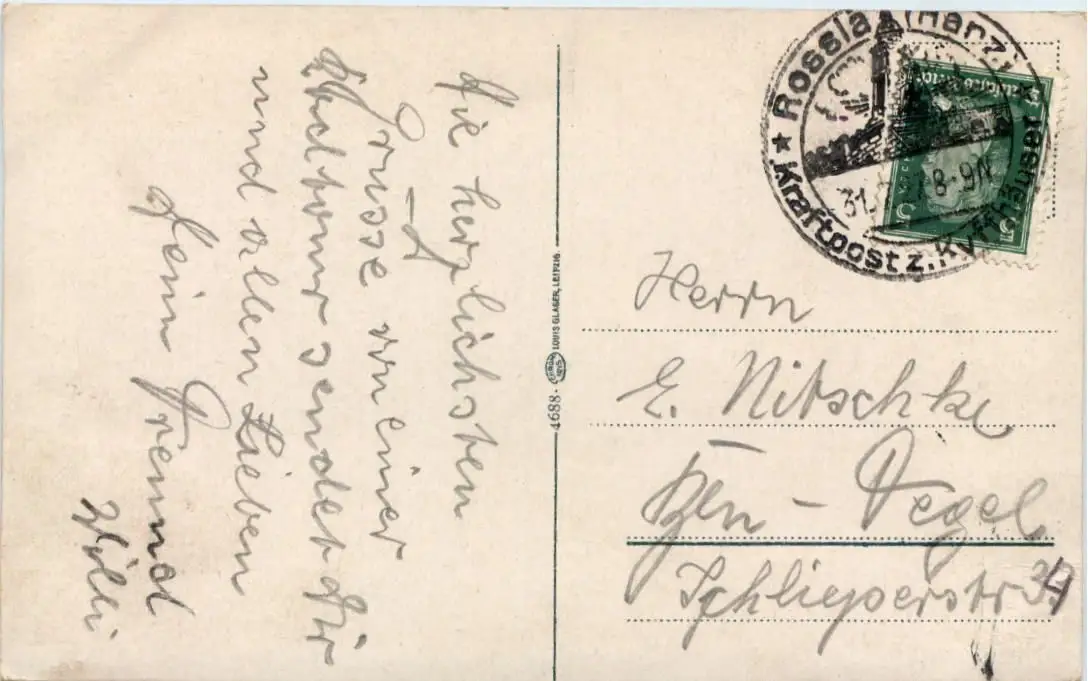 Die herzlichsten
Grüsse von einer
Radtour sendet Dir
und allen Lieben
Dein Freund
Willi
4688. LOUIS GLASER, LEIPZIG
★ Rossla (Harz)
Kraftpost z. Kyffhäuser
31. 8-9N
5 5
Herrn
E. Nitschke
Bln - Tegel
Schlieperstr 34